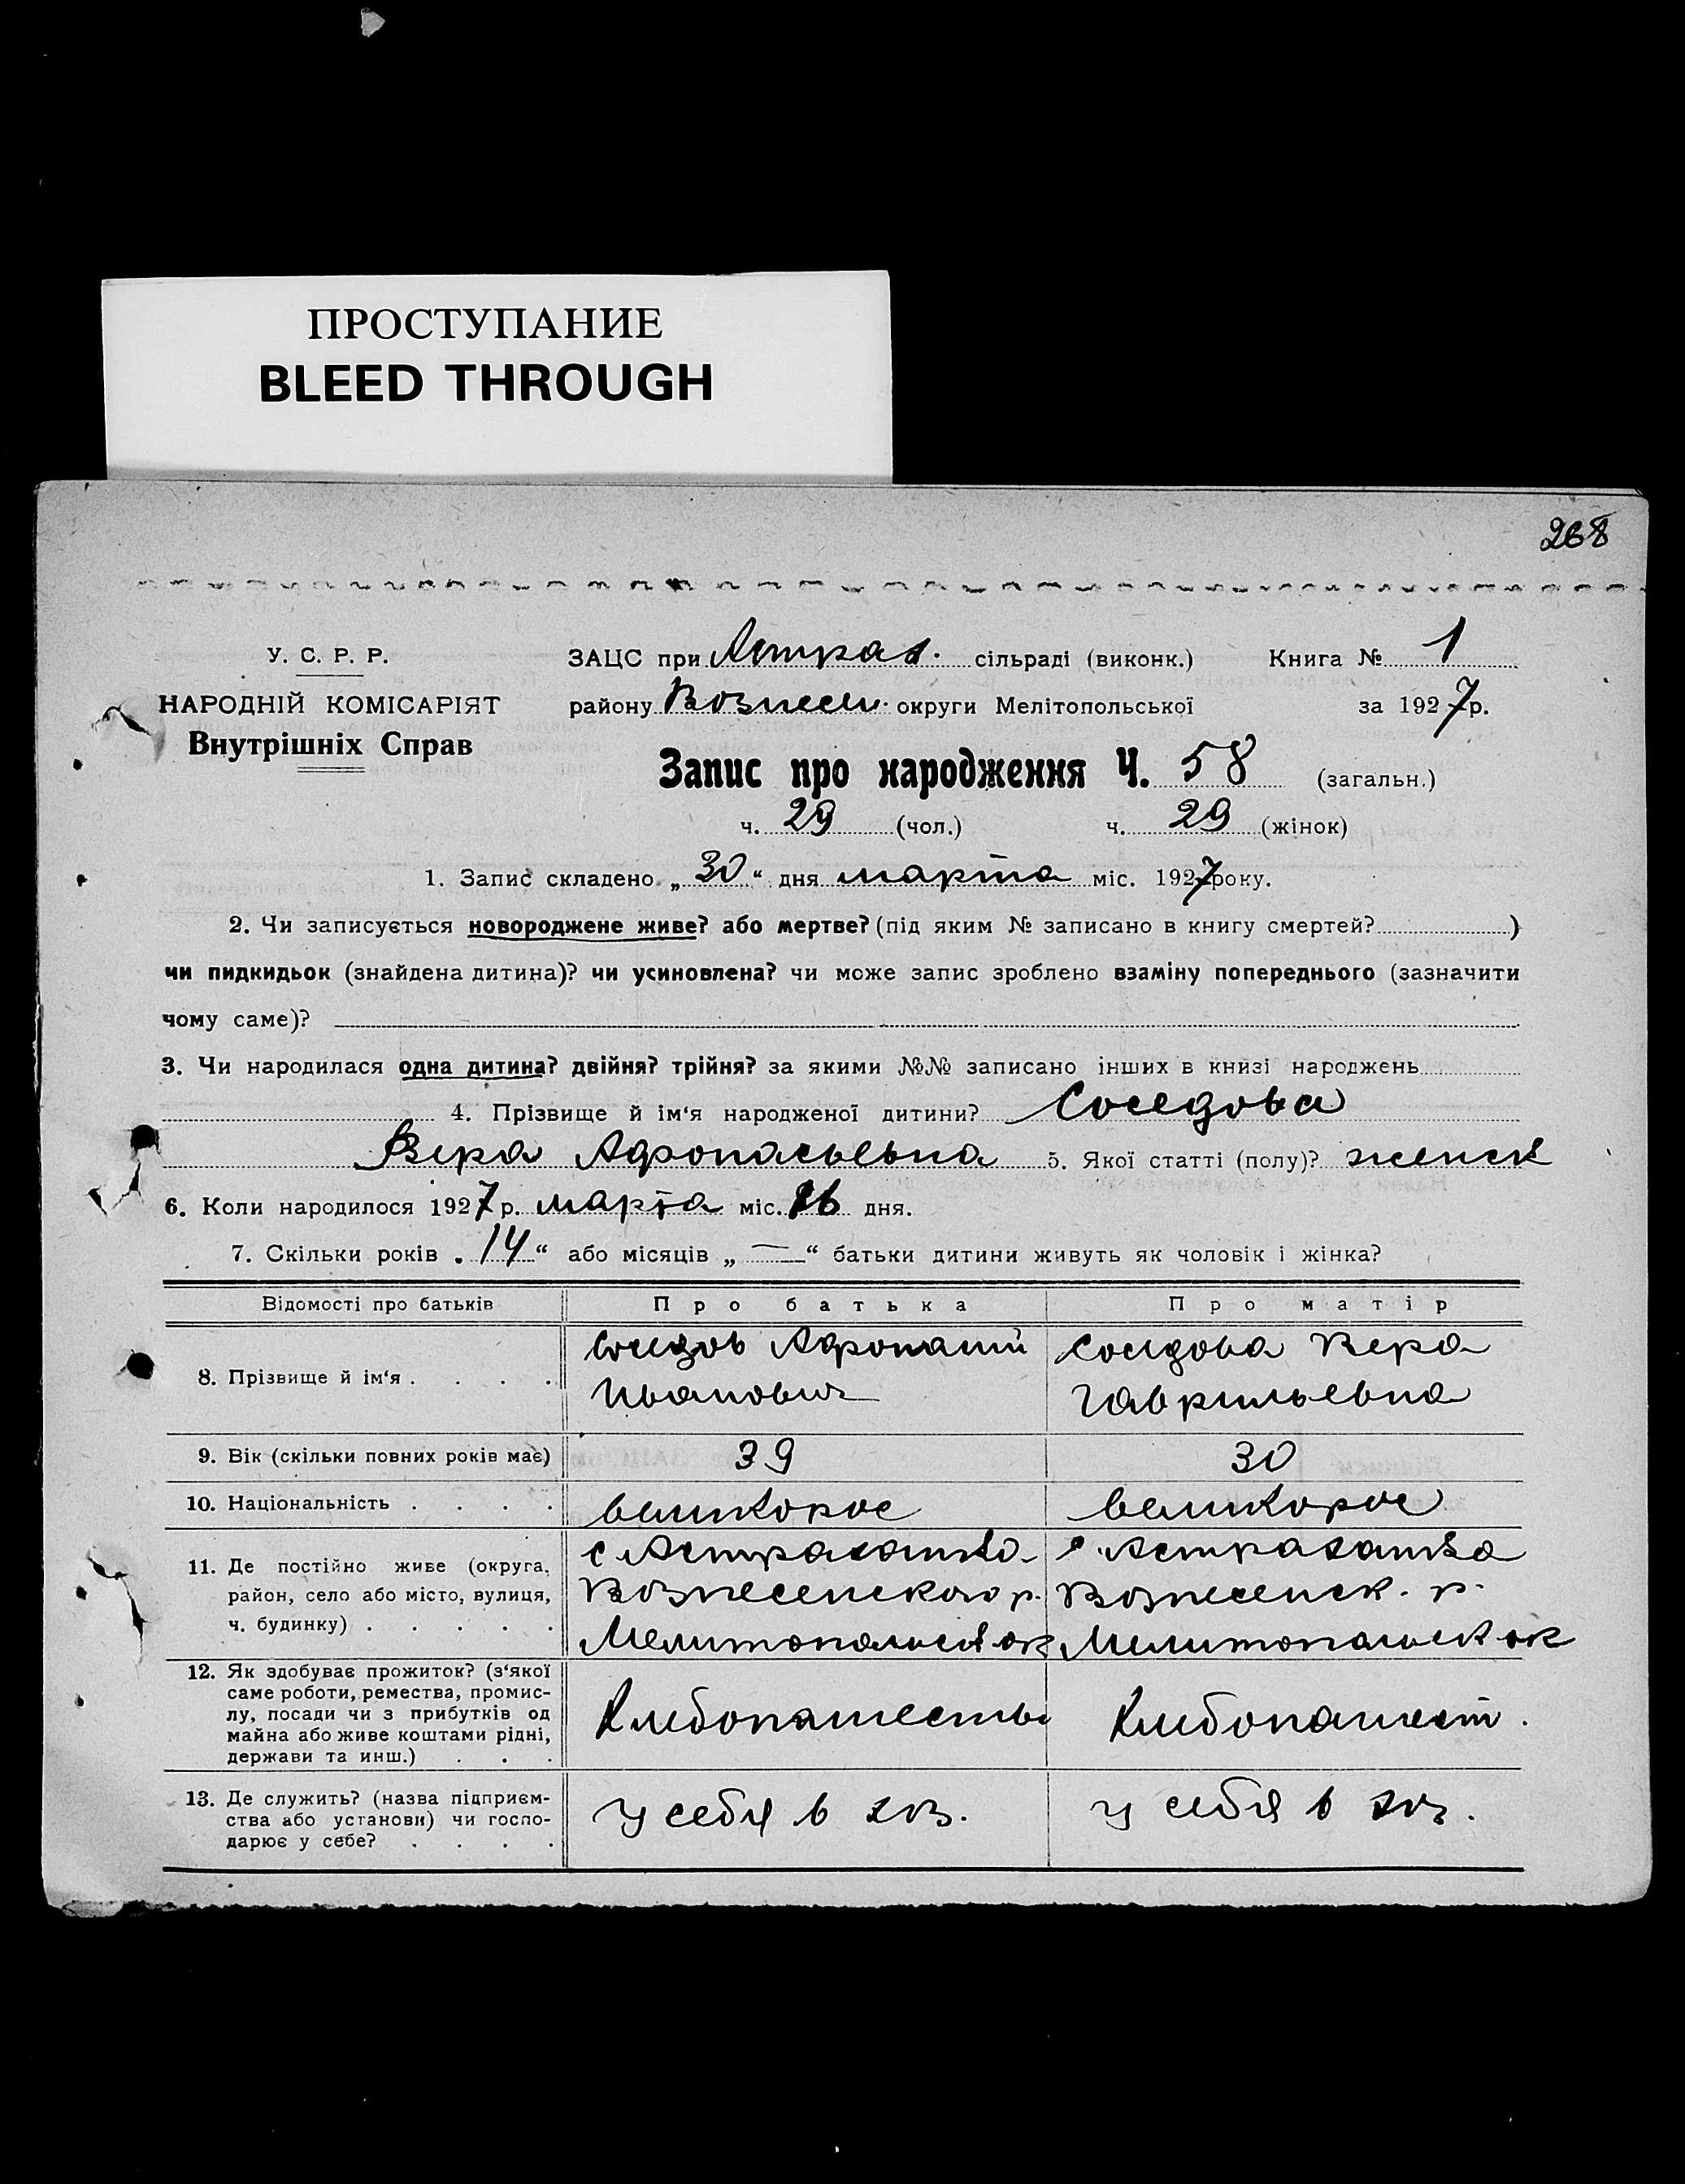 ПРОСТУПАНИЕ
BLEED THROUGH
268
У. С. Р. Р.
ЗАЦС при Астрах. сільраді (виконк.) Книга № 1
НАРОДНІЙ КОМІСАРІЯТ
району Вознесен. округи Мелітопольської за 1927 р.
Внутрішніх Справ
Запис про народження Ч. 58 (загальн.)
ч. 29 (чол.) ч. 29 (жінок)
1. Запис складено „30“ дня марта міс. 1927 року.
2. Чи записується новороджене живе? або мертве? (під яким № записано в книгу смертей? )
чи пидкидьок (знайдена дитина)? чи усиновлена? чи може запис зроблено взаміну попереднього (зазначити
чому саме)?
3. Чи народилася одна дитина? двійня? трійня? за якими №№ записано інших в книзі народжень
4. Прізвище й ім‘я народженої дитини? Соседова
Вера Афонасьевна 5. Якої статті (полу)? женск
6. Коли народилося 1927 р. марта міс. 26 дня.
7. Скільки років „14“ або місяців „—“ батьки дитини живуть як чоловік і жінка?
Відомості про батьків Про батька Про матір
8. Прізвище й ім‘я . . . .
Соседов Афонасий
Иванович
Соседова Вера
Гаврильевна
9. Вік (скільки повних років має) 39 30
10. Національність . . . . великорос великорос
11. Де постійно живе (округа,
район, село або місто, вулиця,
ч. будинку) . . . . .
с Астраханка
Вознесенского р.
Мелитопольск ок
с. Астраханка
Вознесенск. р.
Мелитопольск ок
12. Як здобуває прожиток? (з‘якої
саме роботи, ремества, промис-
лу, посади чи з прибутків од
майна або живе коштами рідні,
держави та инш.) . . .
Хлебопашество
Хлебопашест.
13. Де служить? (назва підприєм-
ства або установи) чи госпо-
дарює у себе? . . . .
у себя в хоз.
у себя в хоз.